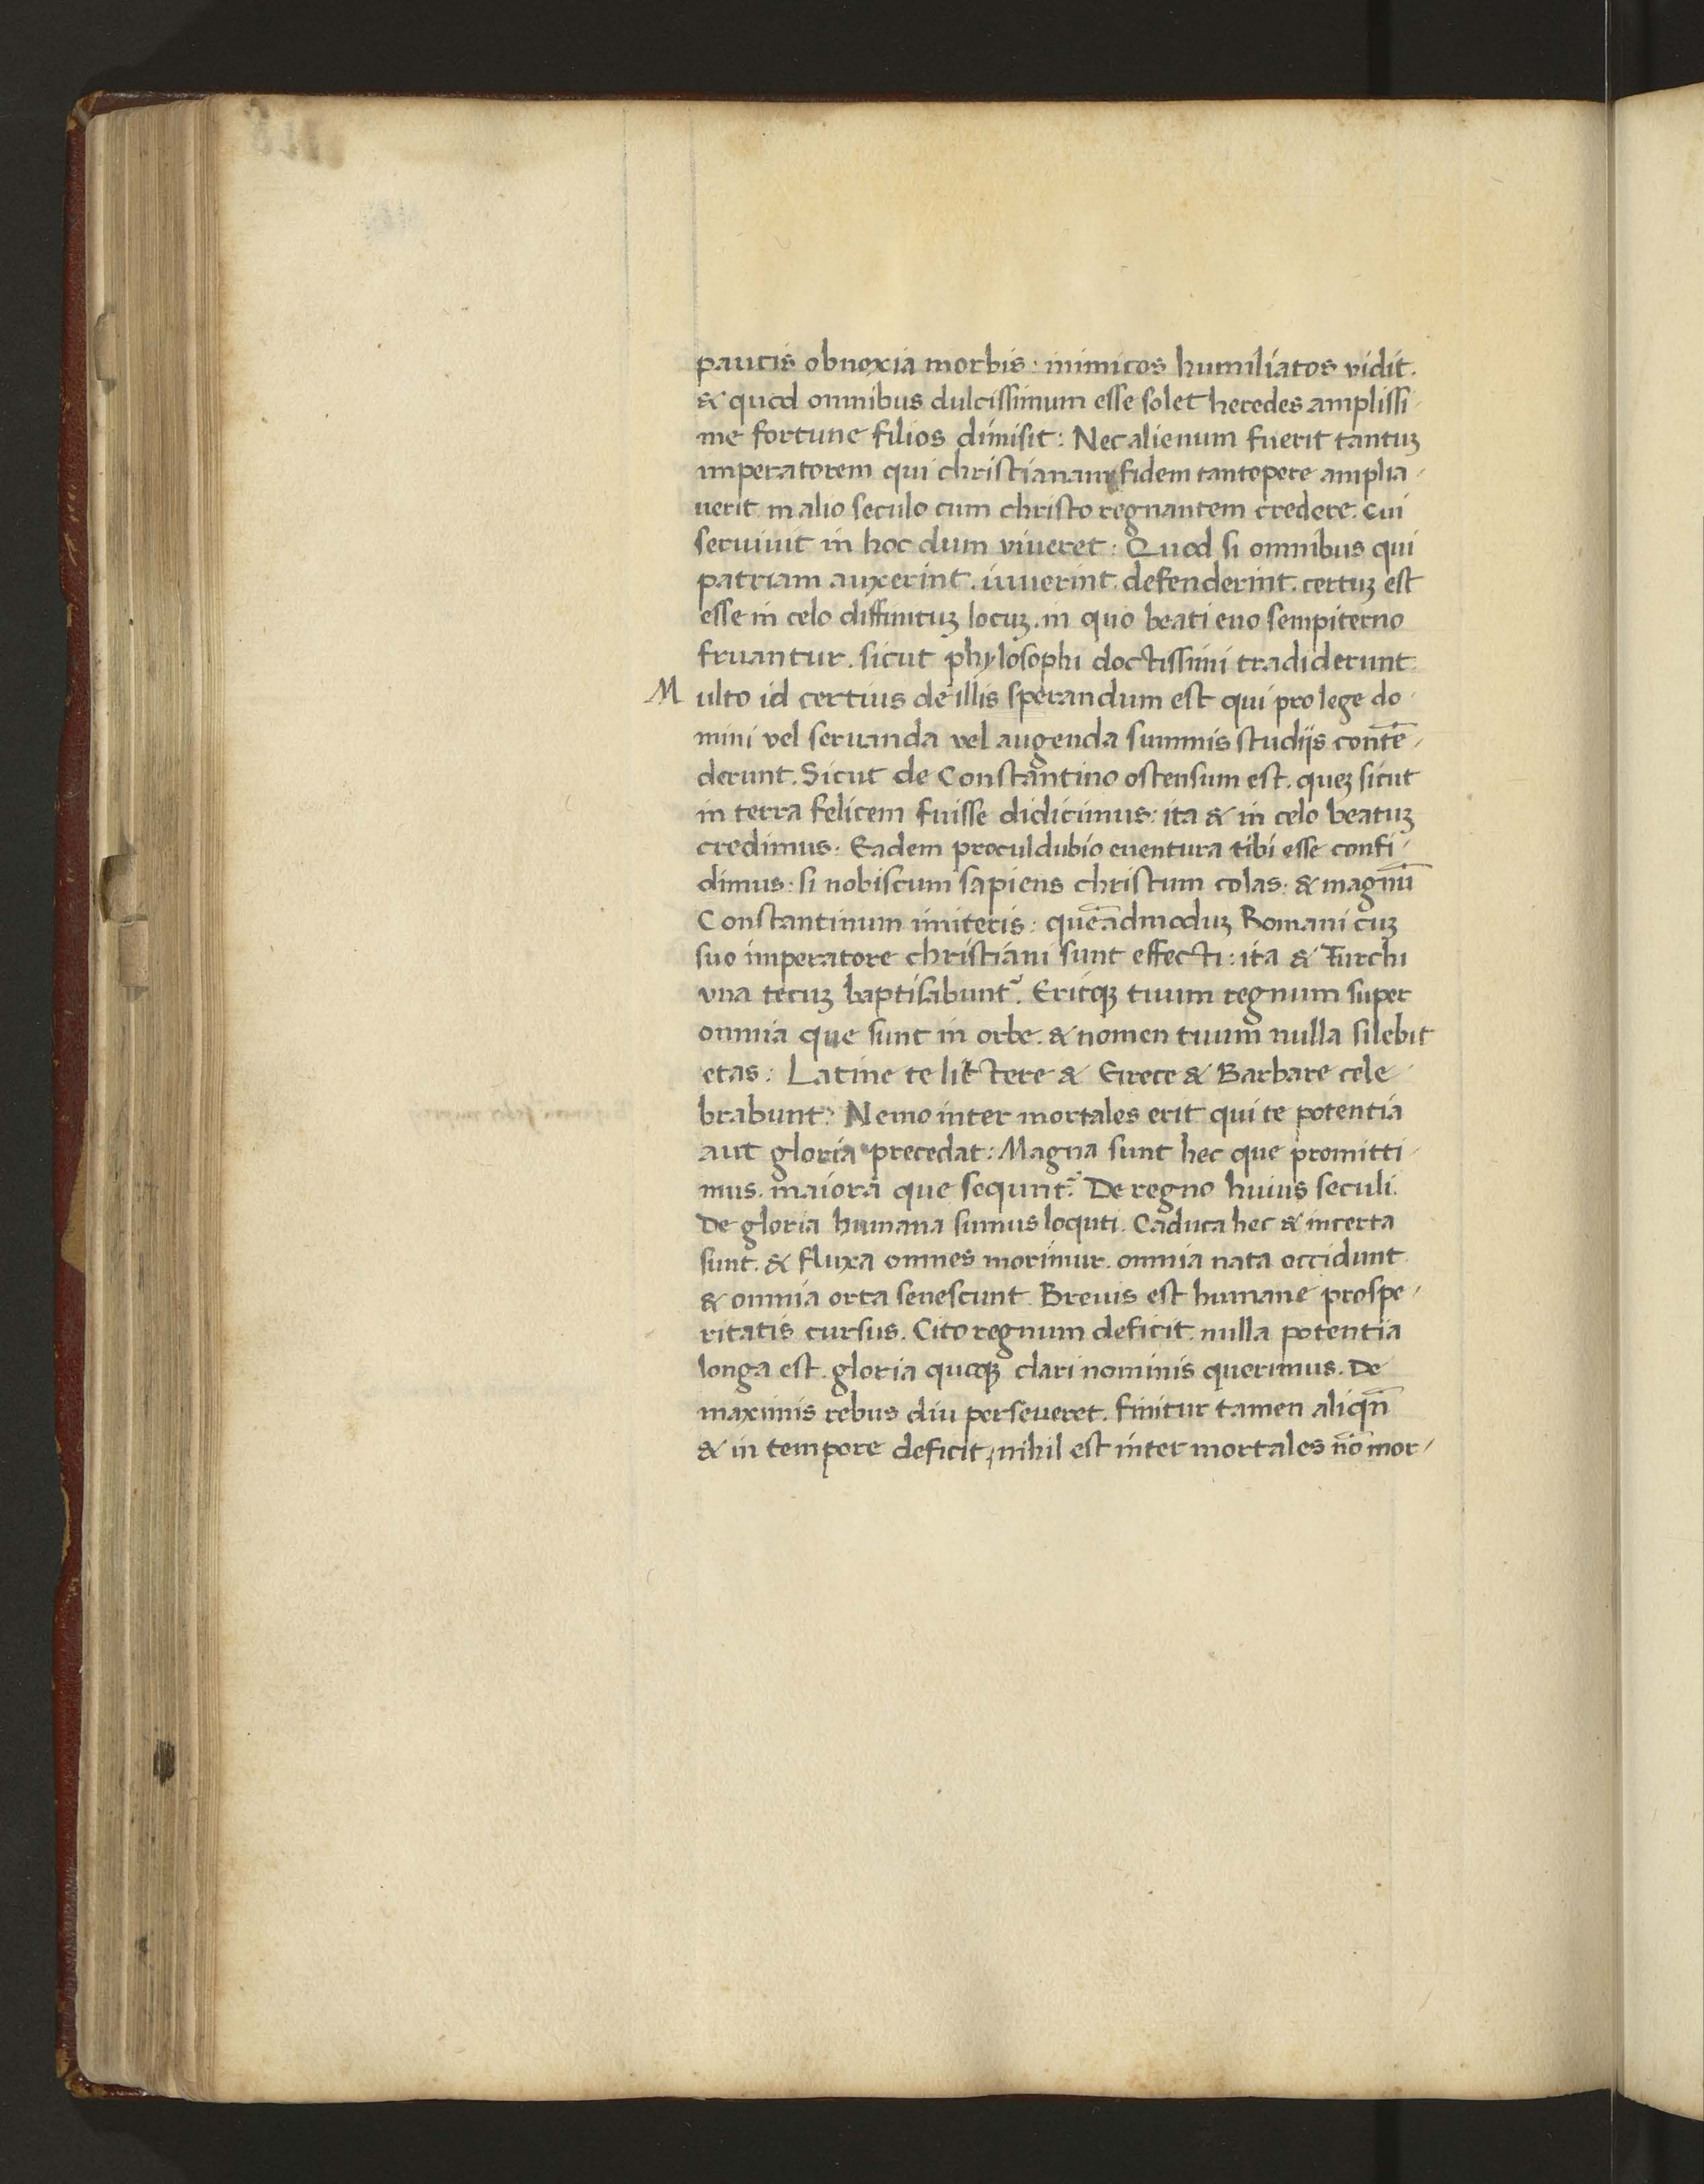 paucis obnoxia morbis · inimicos humiliatos vidit.
& quod omnibus dulcissimum esse solet heredes amplissi-
me fortune filios dimisit: Nec alienum fuerit tantuꝫ
imperatorem qui christianam fidem tantopere amplia-
uerit. in alio seculo cum christo regnantem credere. cui
seruiuit in hoc dum viueret: Quod si omnibus qui
patriam auxerint. iuuerint. defenderint. certuꝫ est
esse in celo diffinituꝫ locuꝫ. in quo beati euo sempiterno
fruantur. sicut phylosophi doctissimi tradiderunt.
Multo id certius de illis sperandum est qui pro lege do-
mini vel seruanda vel augenda summis studijs contē-
derunt. Sicut de Constantino ostensum est. queꝫ sicut
in terra felicem fuisse didicimus: ita & in celo beatuꝫ
credimus: Eadem proculdubio euentura tibi esse confi-
dimus: si nobiscum sapiens christum colas: & magnū
Constantinum imiteris: queādmoduꝫ Romani cuꝫ
suo imperatore christiani sunt effecti: ita & Turchi
vna tecuꝫ baptisabunt᷑. Eritqꝫ tuum regnum super
omnia que sunt in orbe. & nomen tuum nulla silebit
etas: Latine te littere & Grece & Barbare cele-
brabunt: Nemo inter mortales erit qui te potentia
aut gloria precedat: Magna sunt hec que promitti-
mus. maiora que sequnt᷑. De regno huius seculi.
De gloria humana sumus loquti. Caduca hec & incerta
sunt. & fluxa omnes morimur. omnia nata occidunt
& omnia orta senescunt. Breuis est humane prospe-
ritatis cursus. Cito regnum deficit. nulla potentia
longa est. gloria quoqꝫ clari nominis querimus. De
maximis rebus diu perseueret. finitur tamen aliqn̄
& in tempore deficit, nihil est inter mortales nō mor-